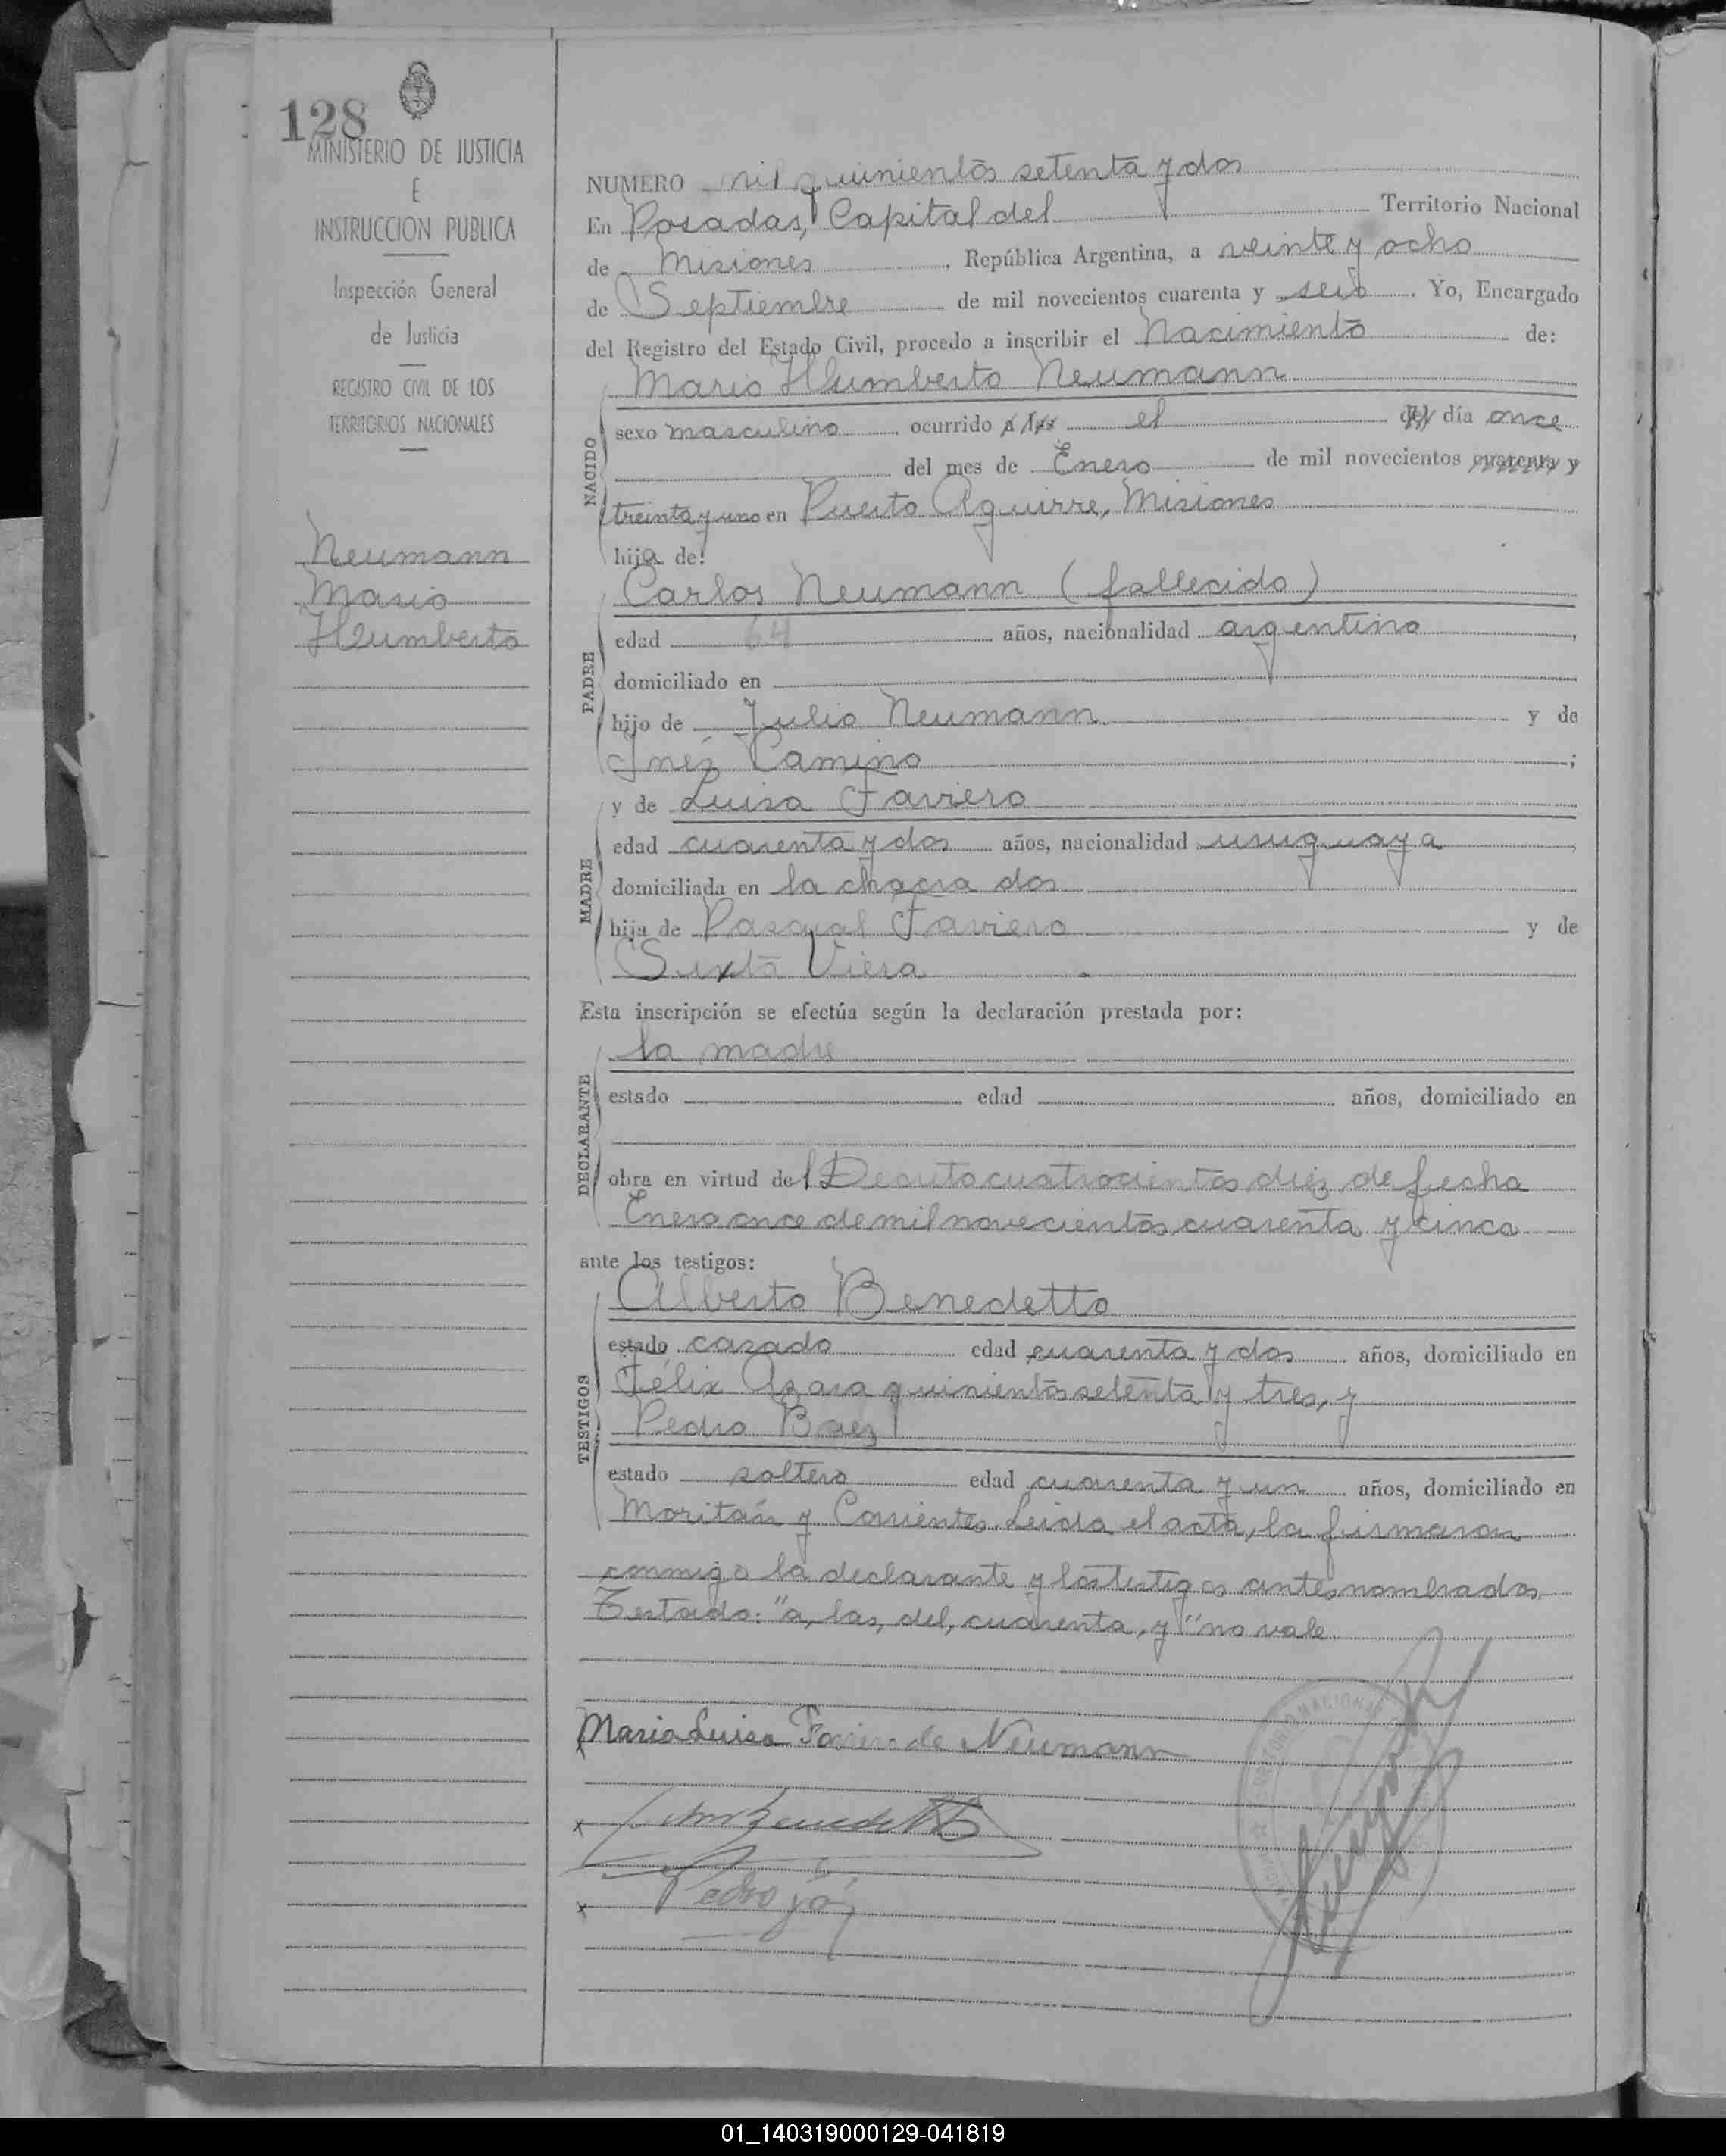 128
MINISTERIO DE JUSTICIA
E
INSTRUCCION PUBLICA
Inspección General
de Justicia
REGISTRO CIVIL DE LOS
TERRITORIOS NACIONALES
Neumann
Mario
Humberto
NUMERO mil quinientos setenta y dos
En Posadas, Capital del Territorio Nacional
de Misiones, República Argentina, a veinte y ocho
de Septiembre de mil novecientos cuarenta y seis. Yo, Encargado
del Registro del Estado Civil, procedo a inscribir el Nacimiento de:
Mario Humberto Neumann
NACIDO
sexo masculino ocurrido a las el del día once
del mes de Enero de mil novecientos cuarenta y
treinta y uno en Puerto Aguirre, Misiones
hijo de:
Carlos Neumann (fallecido)
PADRE
edad 64 años, nacionalidad argentino,
domiciliado en
hijo de Julio Neumann y de
Inés Camino;
y de Luisa Faviero
MADRE
edad cuarenta y dos años, nacionalidad uruguaya,
domiciliada en la chacra dos
hija de Pascual Faviero y de
Sixta Viera
Esta inscripción se efectúa según la declaración prestada por:
la madre
DECLARANTE
estado edad años, domiciliado en
obra en virtud del Decreto cuatrocientos diez de fecha
Enero once de mil novecientos cuarenta y cinco
ante los testigos:
Alberto Benedetto
TESTIGOS
estado casado edad cuarenta y dos años, domiciliado en
Félix Azara quinientos setenta y tres, y
Pedro Baez
estado soltero edad cuarenta y un años, domiciliado en
Moritán y Corrientes. Leida el acta, la firmaron
conmigo la declarante y los testigos antes nombrados.
Testado: "a, las, del, cuarenta, y" no vale
Maria Luisa de Neumann
Benedetto
Pedro
01_140319000129-041819